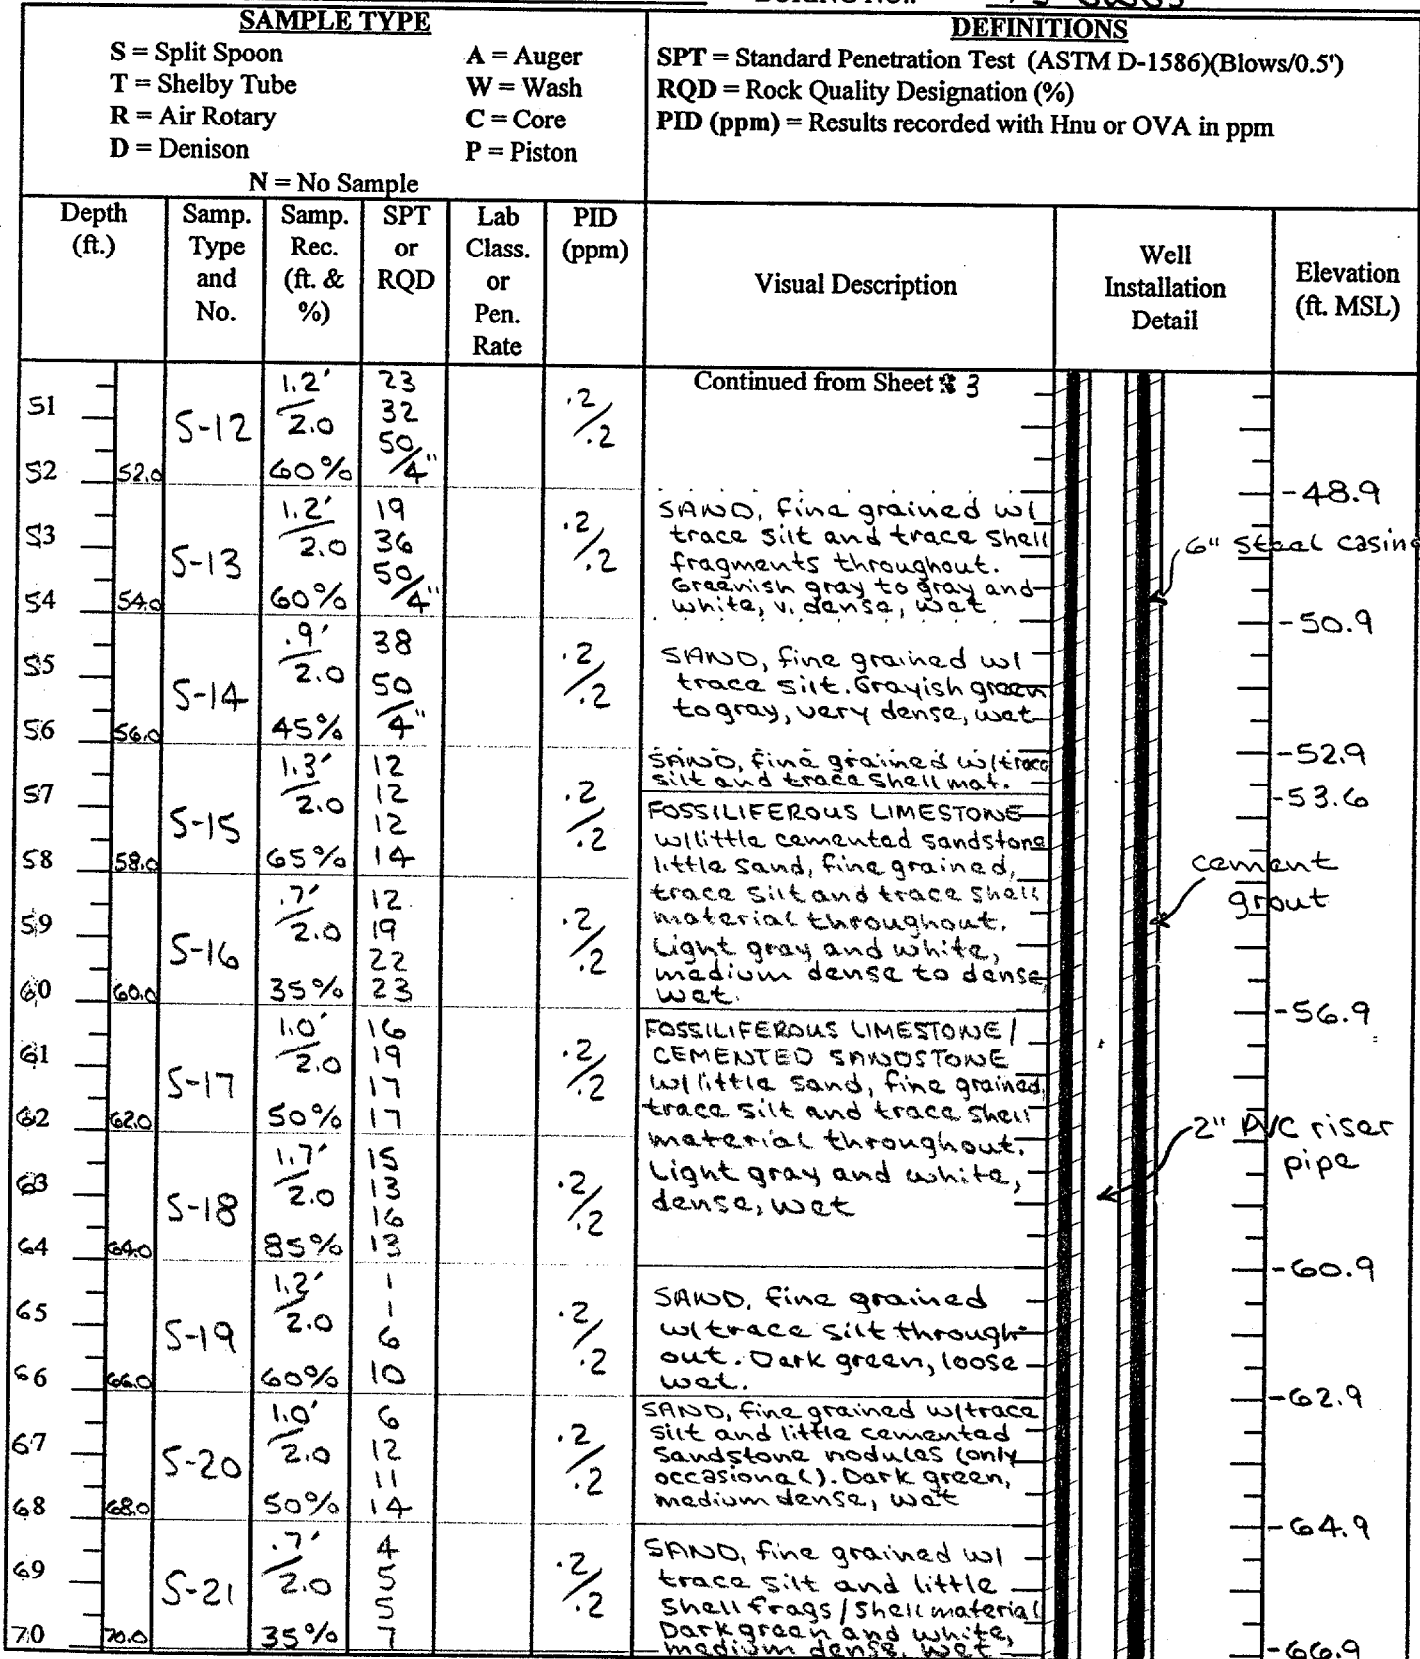 SAMPLE TYPE
S = Split Spoon A = Auger
T = Shelby Tube W = Wash
R = Air Rotary C = Core
D = Denison P = Piston
N = No Sample
DEFINITIONS
SPT = Standard Penetration Test (ASTM D-1586)(Blows/0.5')
RQD = Rock Quality Designation (%)
PID (ppm) = Results recorded with Hnu or OVA in ppm
Depth (ft.)
Samp. Type and No.
Samp. Rec. (ft. & %)
SPT or RQD
Lab Class. or Pen. Rate
PID (ppm)
Visual Description
Well Installation Detail
Elevation (ft. MSL)
Continued from Sheet 3
51
52 52.0
S-12
1.2'/2.0
60%
23
32
50/4"
.2/.2
-48.9
53
54 54.0
S-13
1.2'/2.0
60%
19
36
50/4"
.2/.2
SAND, fine grained w/
trace silt and trace shell
fragments throughout.
Greenish gray to gray and
white, v. dense, wet
6" steel casing
-50.9
55
56 56.0
S-14
.9'/2.0
45%
38
50/4"
.2/.2
SAND, fine grained w/
trace silt. Grayish green
to gray, very dense, wet
-52.9
57
58 58.0
S-15
1.3'/2.0
65%
12
12
12
14
.2/.2
SAND, fine grained w/trace
silt and trace shell mat.
-53.6
FOSSILIFEROUS LIMESTONE
w/little cemented sandstone
little sand, fine grained,
trace silt and trace shell
material throughout.
Light gray and white,
medium dense to dense,
wet.
cement
grout
59
60 60.0
S-16
.7'/2.0
35%
12
19
22
23
.2/.2
-56.9
61
62 62.0
S-17
1.0'/2.0
50%
16
19
17
17
.2/.2
FOSSILIFEROUS LIMESTONE/
CEMENTED SANDSTONE
w/little sand, fine grained,
trace silt and trace shell
material throughout.
Light gray and white,
dense, wet
2" PVC riser
pipe
63
64 64.0
S-18
1.7'/2.0
85%
15
13
16
13
.2/.2
-60.9
65
66 66.0
S-19
1.2'/2.0
60%
1
1
6
10
.2/.2
SAND, fine grained
w/trace silt through-
out. Dark green, loose
wet.
-62.9
67
68 68.0
S-20
1.0'/2.0
50%
6
12
11
14
.2/.2
SAND, fine grained w/trace
silt and little cemented
Sandstone nodules (only
occasional). Dark green,
medium dense, wet
-64.9
69
70 70.0
S-21
.7'/2.0
35%
4
5
5
7
.2/.2
SAND, fine grained w/
trace silt and little
Shell frags/shell material
Dark green and white,
medium dense, wet
-66.9